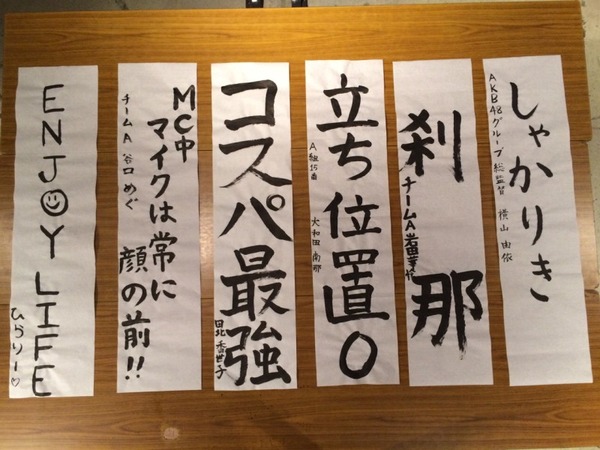 しゃかりき
AKB48グループ 総監督 横山 由依
刹那
チームA 岩田華怜
立ち位置0
A組15番 大和田 南那
コスパ最強
田北 香世子
MC中
マイクは常に
顔の前!!
チームA 谷口 めぐ
ENJ☺Y LIFE
ひらりー♡